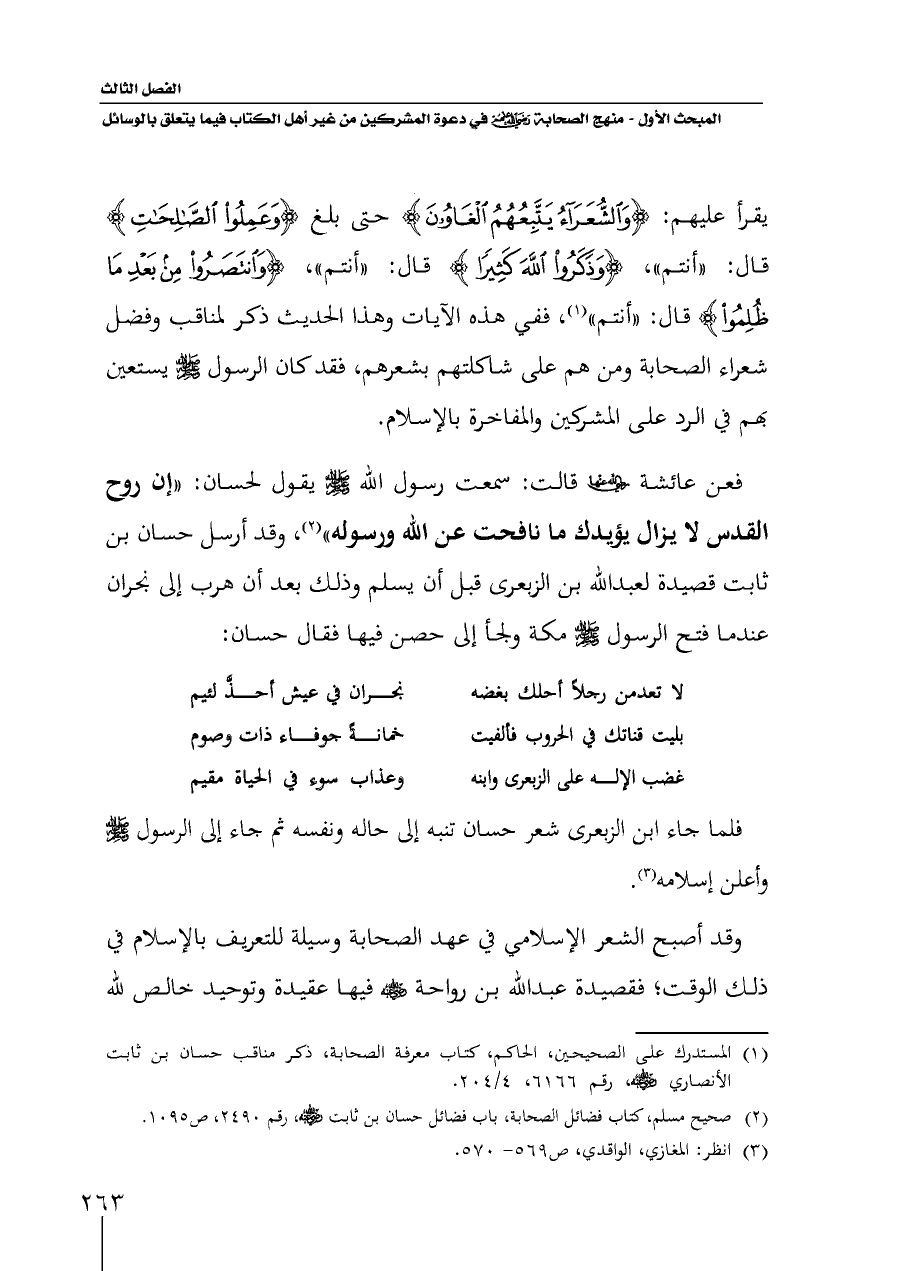 الفصل الثالث
المبحث الأول - منهج الصحابة رضي الله عنهم في دعوة المشركين من غير أهل الكتاب فيما يتعلق بالوسائل
يقرأ عليهم: ﴿وَٱلشُّعَرَآءُ يَتَّبِعُهُمُ ٱلْغَاوُۥنَ﴾ حتى بلغ ﴿وَعَمِلُوا۟ ٱلصَّٰلِحَٰتِ﴾
قال: «أنتم»، ﴿وَذَكَرُوا۟ ٱللَّهَ كَثِيرًا﴾ قال: «أنتم»، ﴿وَٱنتَصَرُوا۟ مِنۢ بَعْدِ مَا
ظُلِمُوا۟﴾ قال: «أنتم»(١)، ففي هذه الآيات وهذا الحديث ذكر لمناقب وفضل
شعراء الصحابة ومن هم على شاكلتهم بشعرهم، فقد كان الرسول ﷺ يستعين
بهم في الرد على المشركين والمفاخرة بالإسلام.
فعن عائشة رضي الله عنها قالت: سمعت رسول الله ﷺ يقول لحسان: «إن روح
القدس لا يزال يؤيدك ما نافحت عن الله ورسوله»(٢)، وقد أرسل حسان بن
ثابت قصيدة لعبدالله بن الزبعرى قبل أن يسلم وذلك بعد أن هرب إلى نجران
عندما فتح الرسول ﷺ مكة ولجأ إلى حصن فيها فقال حسان:
لا تعدمن رجلاً أحلك بغضه نجـــران في عيش أحـــذَّ لئيم
بليت قناتك في الحروب فألفيت خمانـــةً جوفـــاء ذات وصوم
غضب الإلـــه على الزبعرى وابنه وعذاب سوء في الحياة مقيم
فلما جاء ابن الزبعرى شعر حسان تنبه إلى حاله ونفسه ثم جاء إلى الرسول ﷺ
وأعلن إسلامه(٣).
وقد أصبح الشعر الإسلامي في عهد الصحابة وسيلة للتعريف بالإسلام في
ذلك الوقت؛ فقصيدة عبدالله بن رواحة رضي الله عنه فيها عقيدة وتوحيد خالص لله
(١) المستدرك على الصحيحين، الحاكم، كتاب معرفة الصحابة، ذكر مناقب حسان بن ثابت
الأنصاري رضي الله عنه، رقم ٦١٦٦، ٢٠٤/٤.
(٢) صحيح مسلم، كتاب فضائل الصحابة، باب فضائل حسان بن ثابت رضي الله عنه، رقم ٢٤٩٠، ص١٠٩٥.
(٣) انظر: المغازي، الواقدي، ص٥٦٩- ٥٧٠.
٢٦٣